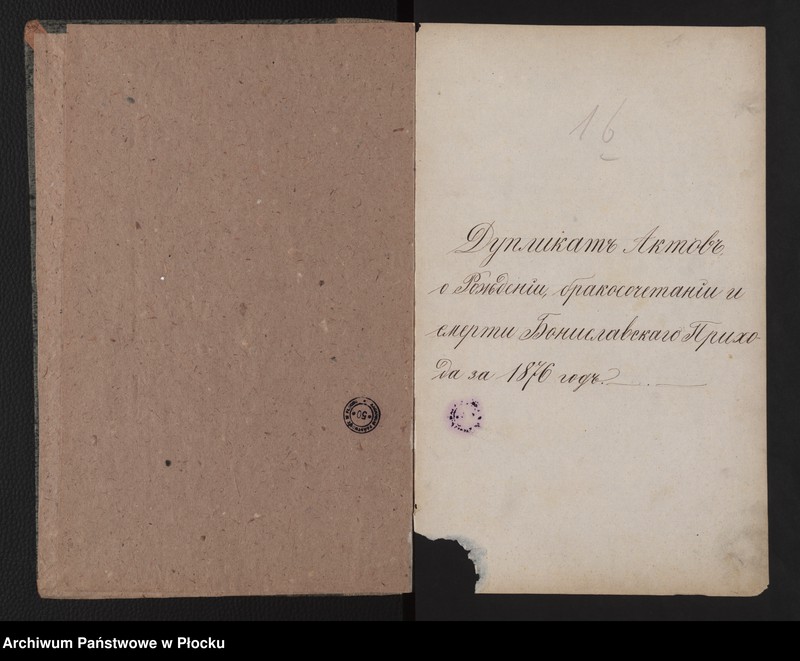 16
Дупликатъ Актовъ
о Рожденіи, бракосочетаніи и
смерти Бониславскаго Прихо-
да за 1876 годъ.
50
Archiwum Państwowe w Płocku